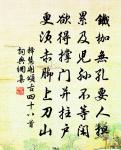 鐵枷無孔要人擔
累及兒孫不等閑
欲得撑門并拄戶
更須赤腳上刀山
釋慧開頌古四十八首
詞典網集